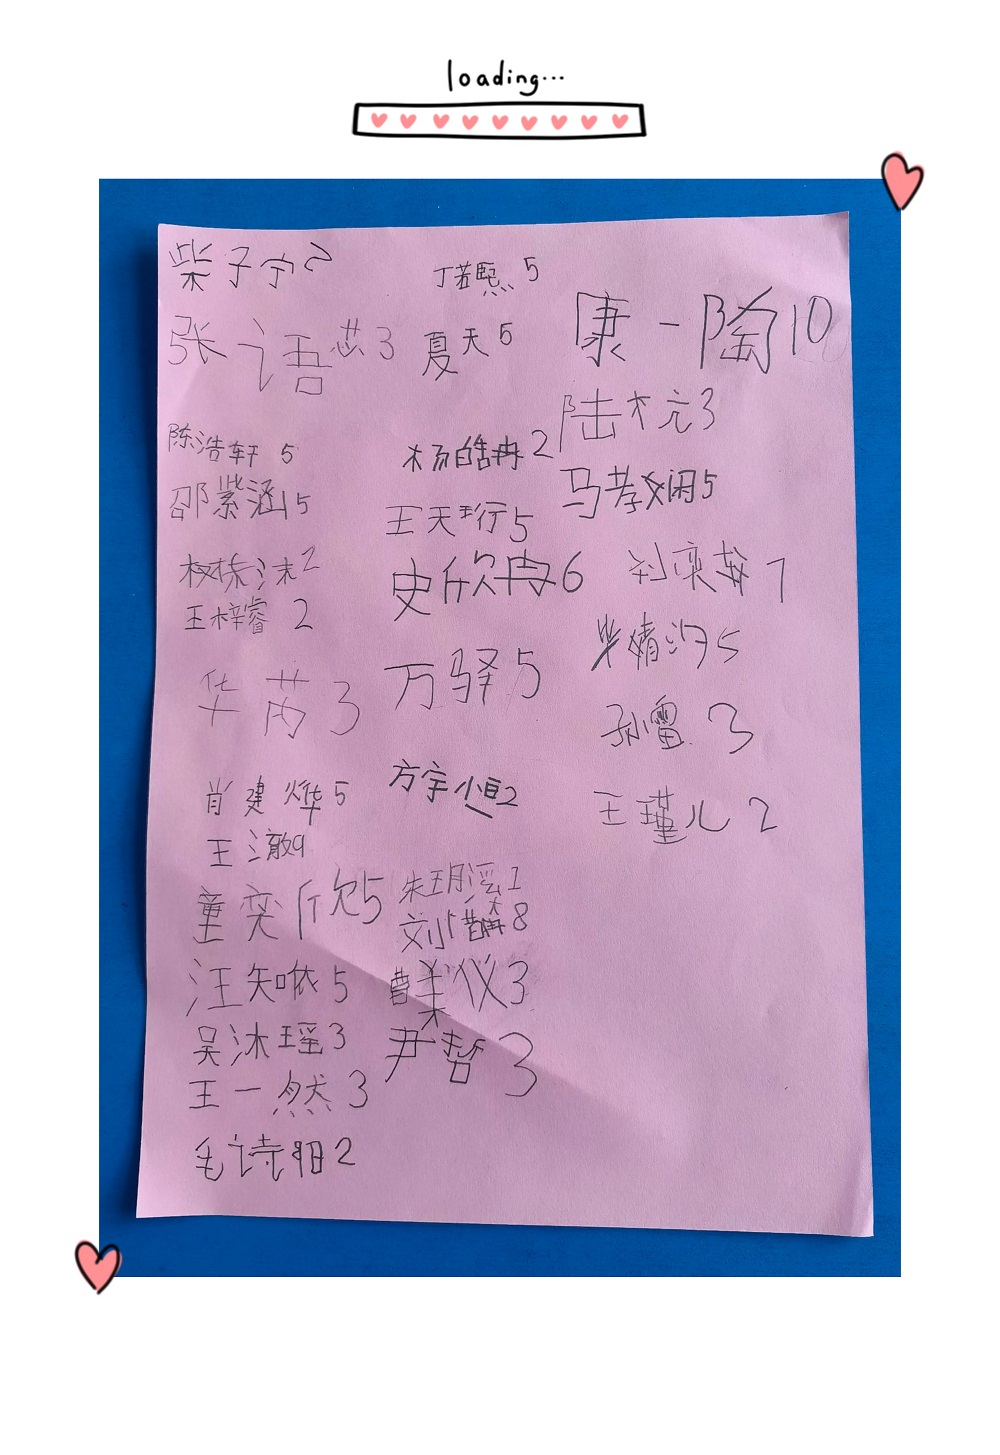 loading...
柴子宁2
张语芯3
陈浩轩 5
邵紫涵5
王梓睿 2
华芮3
肖建烨5
王澈9
童奕欣5
汪知 5
吴沐瑶3
王一然3
毛诗阳2
丁若熙5
夏天5
杨皓冉2
王天珩5
史欣冉6
万驿5
方宇恒2
朱玥滛1
刘 8
曹美仪3
尹哲3
康一陶10
陆梡3
马孝娴5
刘奕 7
婧 5
孙雷 3
王瑾儿 2